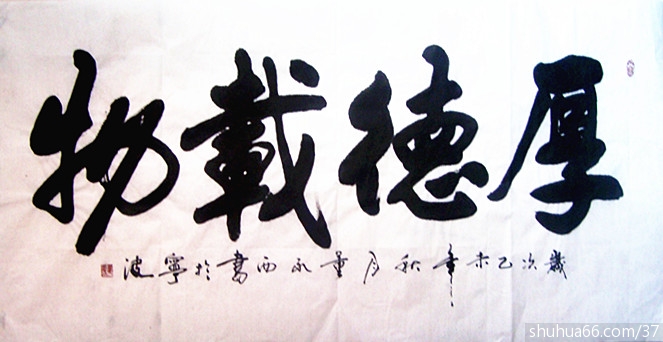 厚德載物
歲次乙未年秋月董永西書於寧波
shuhua66.com/37